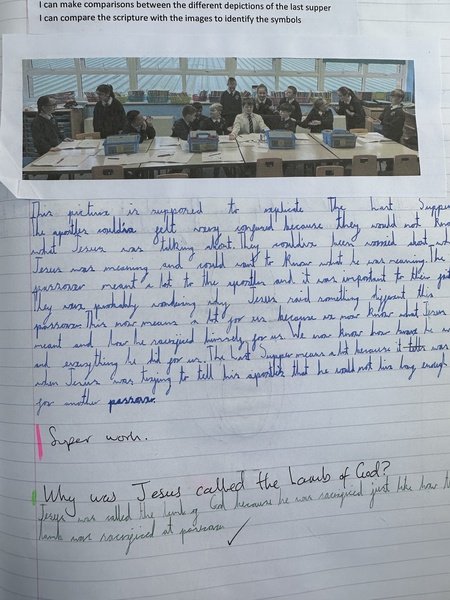 I can make comparisons between the different depictions of the last supper
I can compare the scripture with the images to identify the symbols
This picture is supposed to replicate The Last Supper
The apostles felt very confused because they would not know
what Jesus was talking about. They been worried about what
Jesus was meaning and would want to know what he was meaning. The
passover meant a lot to the apostles and it was important to their
They were probably wondering why Jesus said something different this
passover. This now means a lot for us because we now know what Jesus
meant and how he sacrificed himself for us. We now know how he
and everything he did for us. The Last Supper means a lot because it was
when Jesus was trying to tell his apostles that he would not long enough
for another passover.
Super work.
Why was Jesus called the Lamb of God?
Jesus was called the lamb of God because he was sacrificed just like how the
lamb was sacrificed at